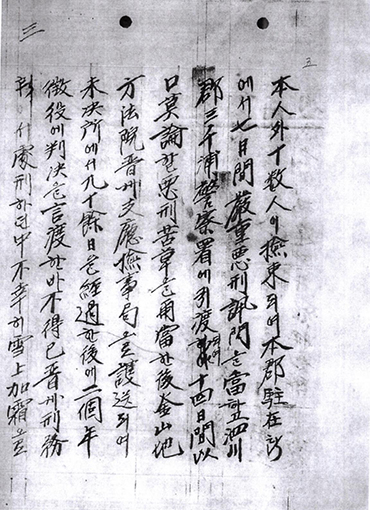 三
本人外十數人이 撫束되여 本郡駐在所
에서 七日間 嚴重惡刑訊問을 當하고 泗川
郡三千浦警察署에 引渡 十四日間以
口莫論한 惡刑苦草을 用當한 後 釜山地
方法院晋州支廳撿事局으로 護送되여
未決所에서 九十餘日을 經過한 後에 二個年
徵役에 判決을 言渡한바 不得已 晋州刑務
서 處刑하든中 不幸히 雪上加霜으로
3